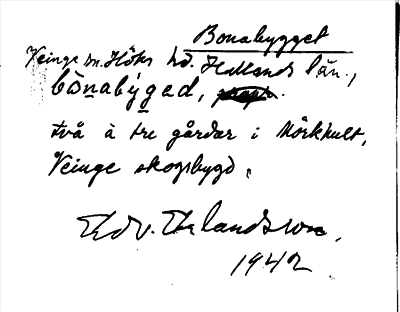 Bonabygget
Veinge sn. Höks hd. Hallands län.,
bònabýgad,
två à tre gårdar i Mörkhult,
Veinge skogsbygd.
Edv. Erlandsson.
1942